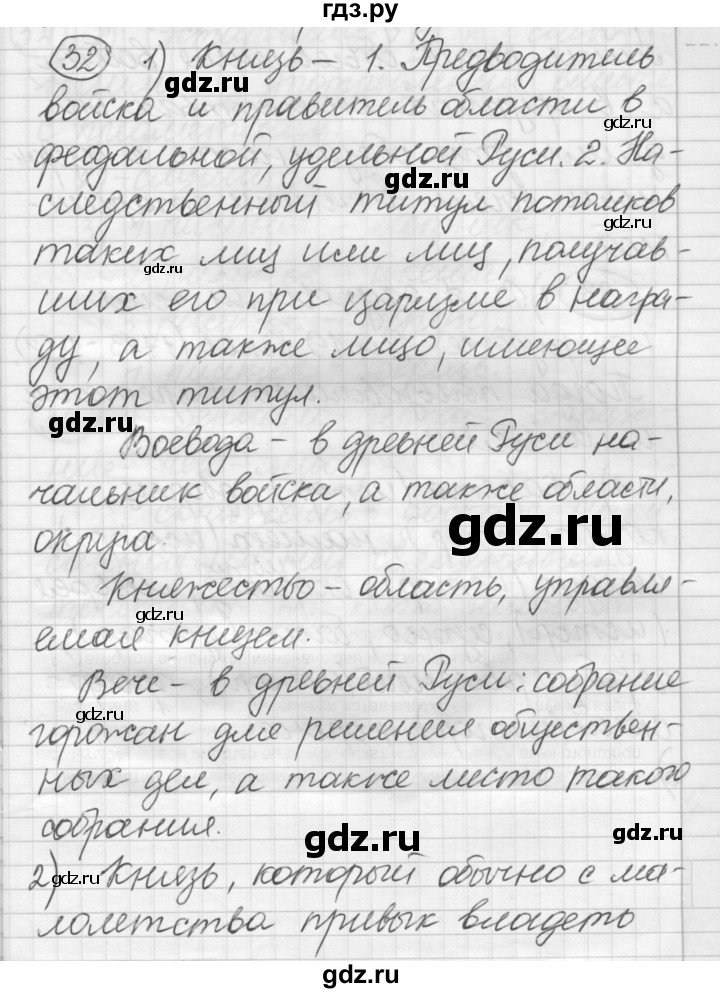 гдз.ру
32 1) Князь – 1. Предводитель
войска и правитель области в
феодальной, удельной Руси. 2. На-
gdz.ru
следственный титул потомков
таких лиц или лиц, получав-
gdz.ru
ших его при царизме в награ-
ду, а также лицо, имеющее
этот титул.
gdz.ru
Воевода – в древней Руси на-
чальник войска, а также области,
округа.
gdz.ru
Княжество – область, управля-
gdz.ru
емая князем.
Вече – в древней Руси: собрание
gdz.ru
горожан для решения обществен-
ных дел, а также место такого
собрания.
gdz.ru
gdz.ru
2) Князь, который обычно с ма-
gdz.ru
лолетства привык владеть
gdz.ru